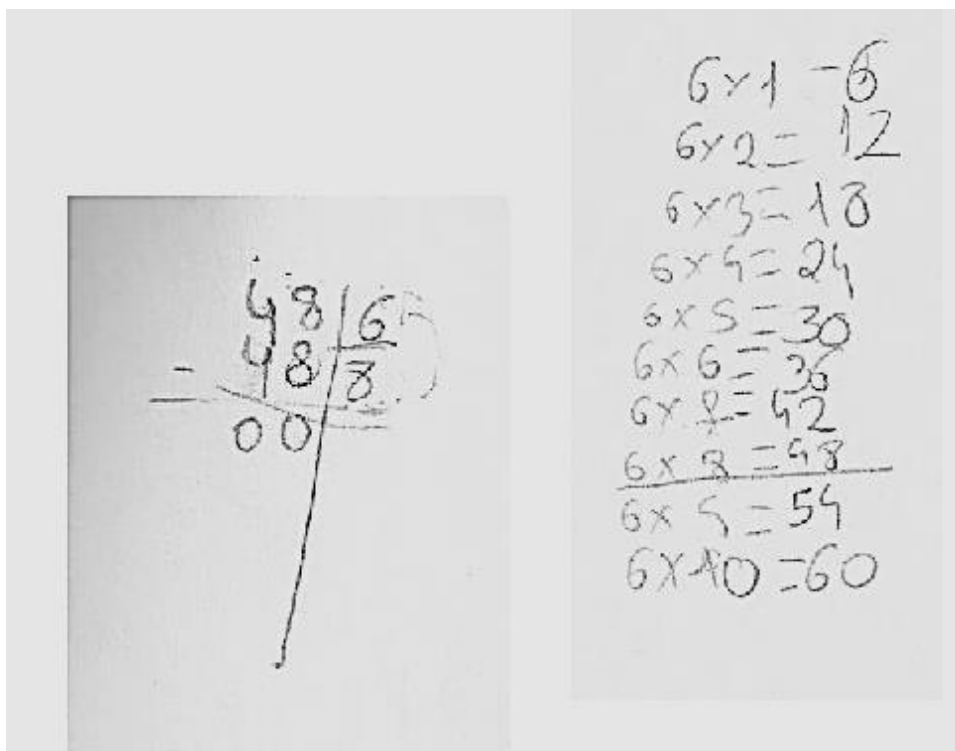 48 6
- 48 8
00
6x1 -6
6x2= 12
6x3=18
6x4=24
6x5=30
6x6=36
6x7=42
6x8=48
6x9=54
6x10=60